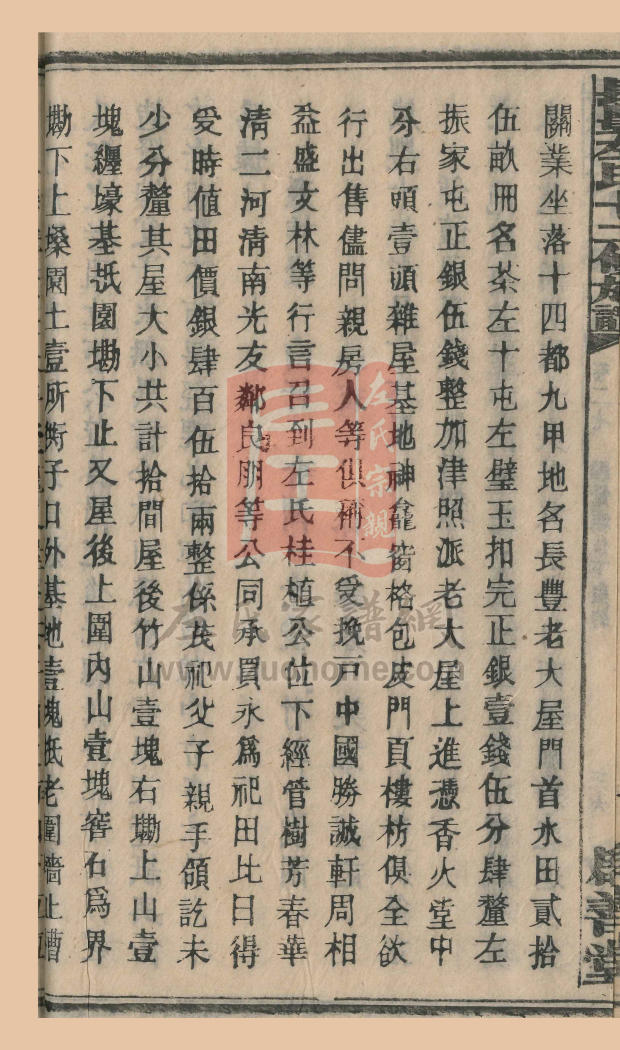 關業坐落十四都九甲地名長豐老大屋門首水田貳拾
伍畝冊名茶左十屯左璧玉扣完正銀壹錢伍分肆釐左
振家屯正銀伍錢整加津照派老大屋上進憑香火堂中
分右頭壹頭雜屋基地神龕窗格包皮門頁樓枋俱全欲
行出售儘問親房人等俱稱不受挽戸中國勝誠軒周相
益盛文林等行言召到左氏桂植公位下經管樹芳春華
清二河清南光友鄰良朋等公同承買永爲祀田比日得
受時值田價銀肆百伍拾兩整係茂祀父子親手領訖未
少分釐其屋大小共計拾間屋後竹山壹塊右勘上山壹
塊纏壕基抵園勘下止又屋後上圍內山壹塊窖石爲界
勘下上園土壹所子口外基地壹塊抵老圍牆止
左氏
左氏宗親
左氏家譜網
www.zuohome.com